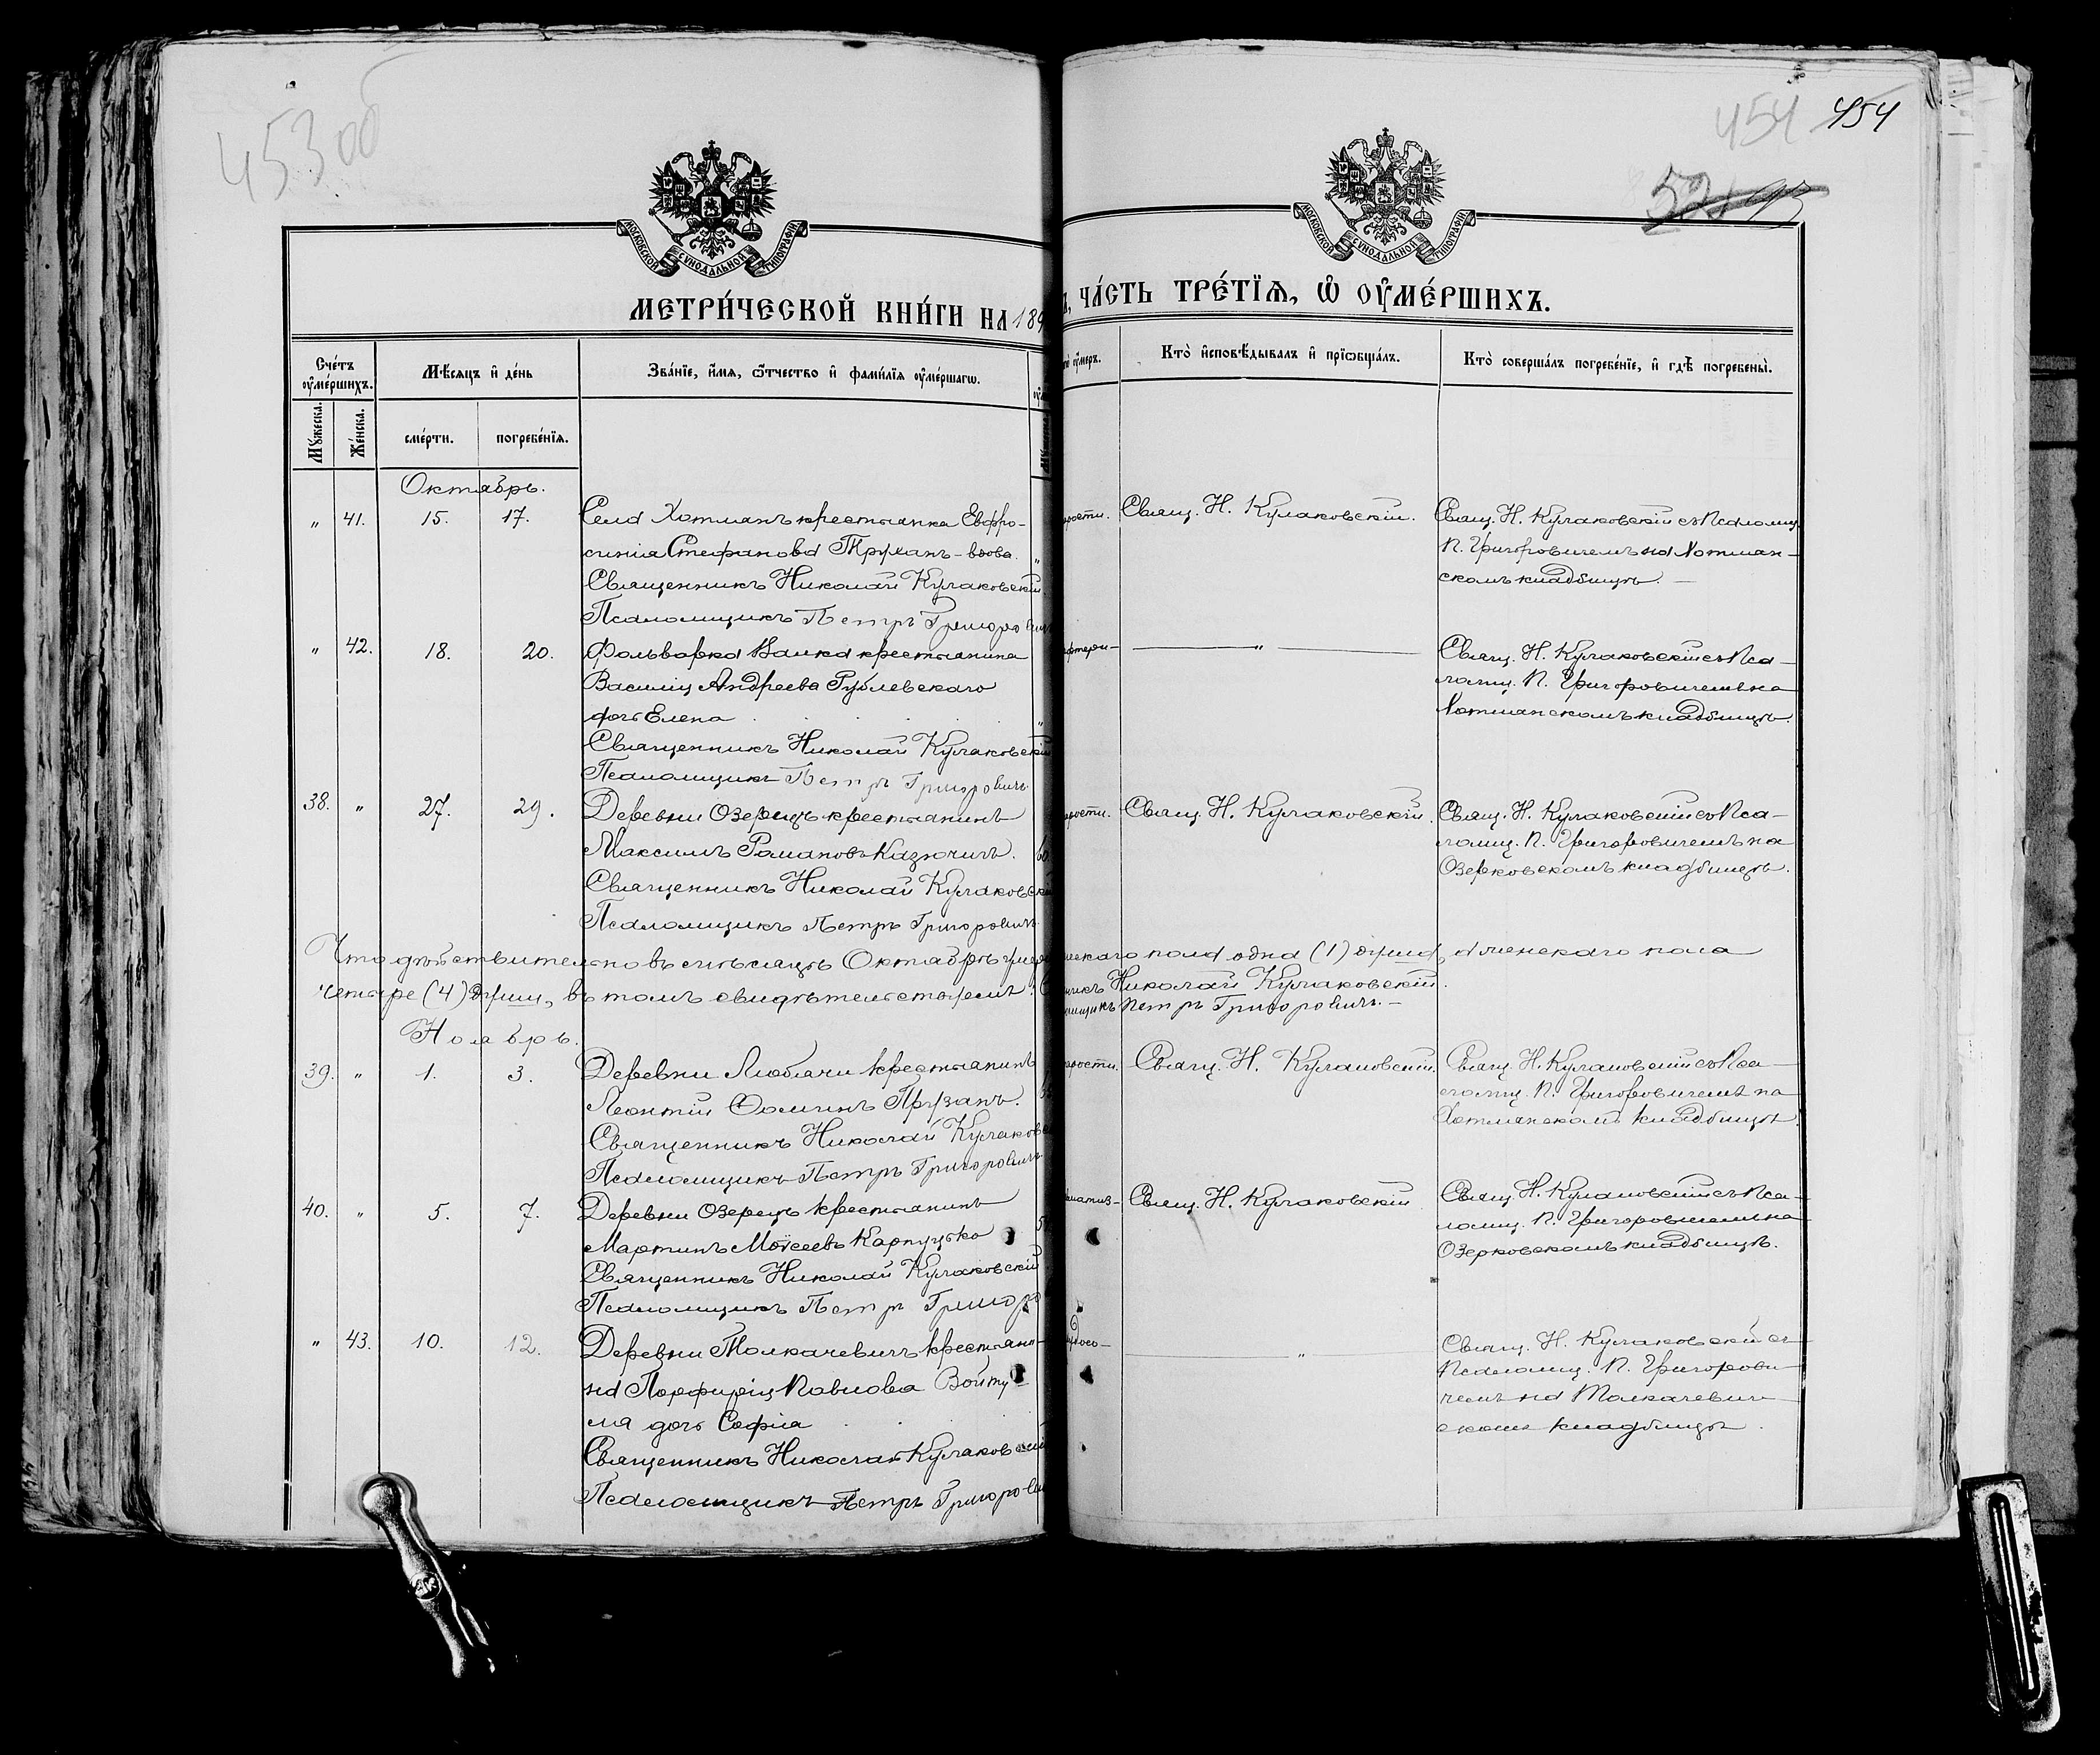 453 об
454 454
МОСКОВСКОЙ СѴНОДАЛЬНОЙ ТИПОГРАФІИ
МОСКОВСКОЙ СѴНОДАЛЬНОЙ ТИПОГРАФІИ
МЕТРИ́ЧЕСКОЙ КНИ́ГИ НА 189
ЧА́СТЬ ТРЕ́ТЇѦ, Ѡ҆ ОУ҆МЕ́РШИХЪ.
Сче́тъ оу҆ме́ршихъ.
Мѣ́сяцъ и҆ де́нь
Зва́нїе, и҆́мя, ѻ҆́тчество и҆ фами́лїя оу҆ме́ршагѡ.
оу҆́меръ.
Кто̀ и҆сповѣ́дывалъ и҆ прїѡбща́лъ.
Кто̀ соверша́лъ погребе́нїе, и҆ гдѣ̀ погребены̀.
Мꙋ́жеска.
Же́нска.
сме́рти.
погребе́нїя.
Октябрь.
„ 41. 15. 17. Села Хотлянъ крестьянка Евфро-
синія Стефанова Труханъ - вдова.
Священникъ Николай Кулаковскій.
Псаломщикъ Петръ Григорович
Свящ. Н. Кулаковскій.
Свящ. Н. Кулаковскій съ Псаломщ.
П. Григоровичемъ на Хотлян-
скомъ кладбищѣ. —
„ 42. 18. 20. Фольварка крестьянина
Василія Андреева Рублевскаго
дочь Елена
Священникъ Николай Кулаковскій
Псаломщикъ Петръ Григоровичъ
— „ —
Свящ. Н. Кулаковскій съ Пса-
ломщ. П. Григоровичемъ на
Хотлянскомъ кладбищѣ.
38. „ 27. 29. Деревни Озерецъ крестьянинъ
Максимъ Романовъ Казючичъ.
Священникъ Николай Кулаковскій
Псаломщикъ Петръ Григоровичъ
Свящ. Н. Кулаковскій.
Свящ. Н. Кулаковскій съ Пса-
ломщ. П. Григоровичемъ на
Озерковскомъ кладбищѣ.
Что дѣйствительно въ мѣсяцѣ Октябрѣ умер
ческаго пола одна (1) душа, а женскаго пола
четыре (4) души, въ томъ свидѣтельствуемъ:
Николай Кулаковскій.
Петръ Григоровичъ. —
Ноябрь.
39. „ 1. 3. Деревни Люблачи крестьянинъ
Леонтій Ѳоминъ Труханъ.
Священникъ Николай Кулаковс
Псаломщикъ Петръ Григоровичъ
Свящ. Н. Кулаковскій.
Свящ. Н. Кулаковскій съ Пса-
ломщ. П. Григоровичемъ на
Хотлянскомъ кладбищѣ.
40. „ 5. 7. Деревни Озерецъ крестьянинъ
Мартинъ Моѵсеевъ Карпуцько
Священникъ Николай Кулаковскій
Псаломщикъ Петръ Григоро
Свящ. Н. Кулаковскій
Свящ. Н. Кулаковскій съ Пса-
ломщ. П. Григоровичемъ на
Озерковскомъ кладбищѣ.
„ 43. 10. 12. Деревни Толкачевичъ крестьяни-
на Порфирія Павлова Войту-
ля дочь Софія
Священникъ Николай Кулаковскій
Псаломщикъ Петръ Григоров
— „ —
Свящ. Н. Кулаковскій съ
Псаломщ. П. Григорови-
чемъ на Толкачевич-
скомъ кладбищѣ.